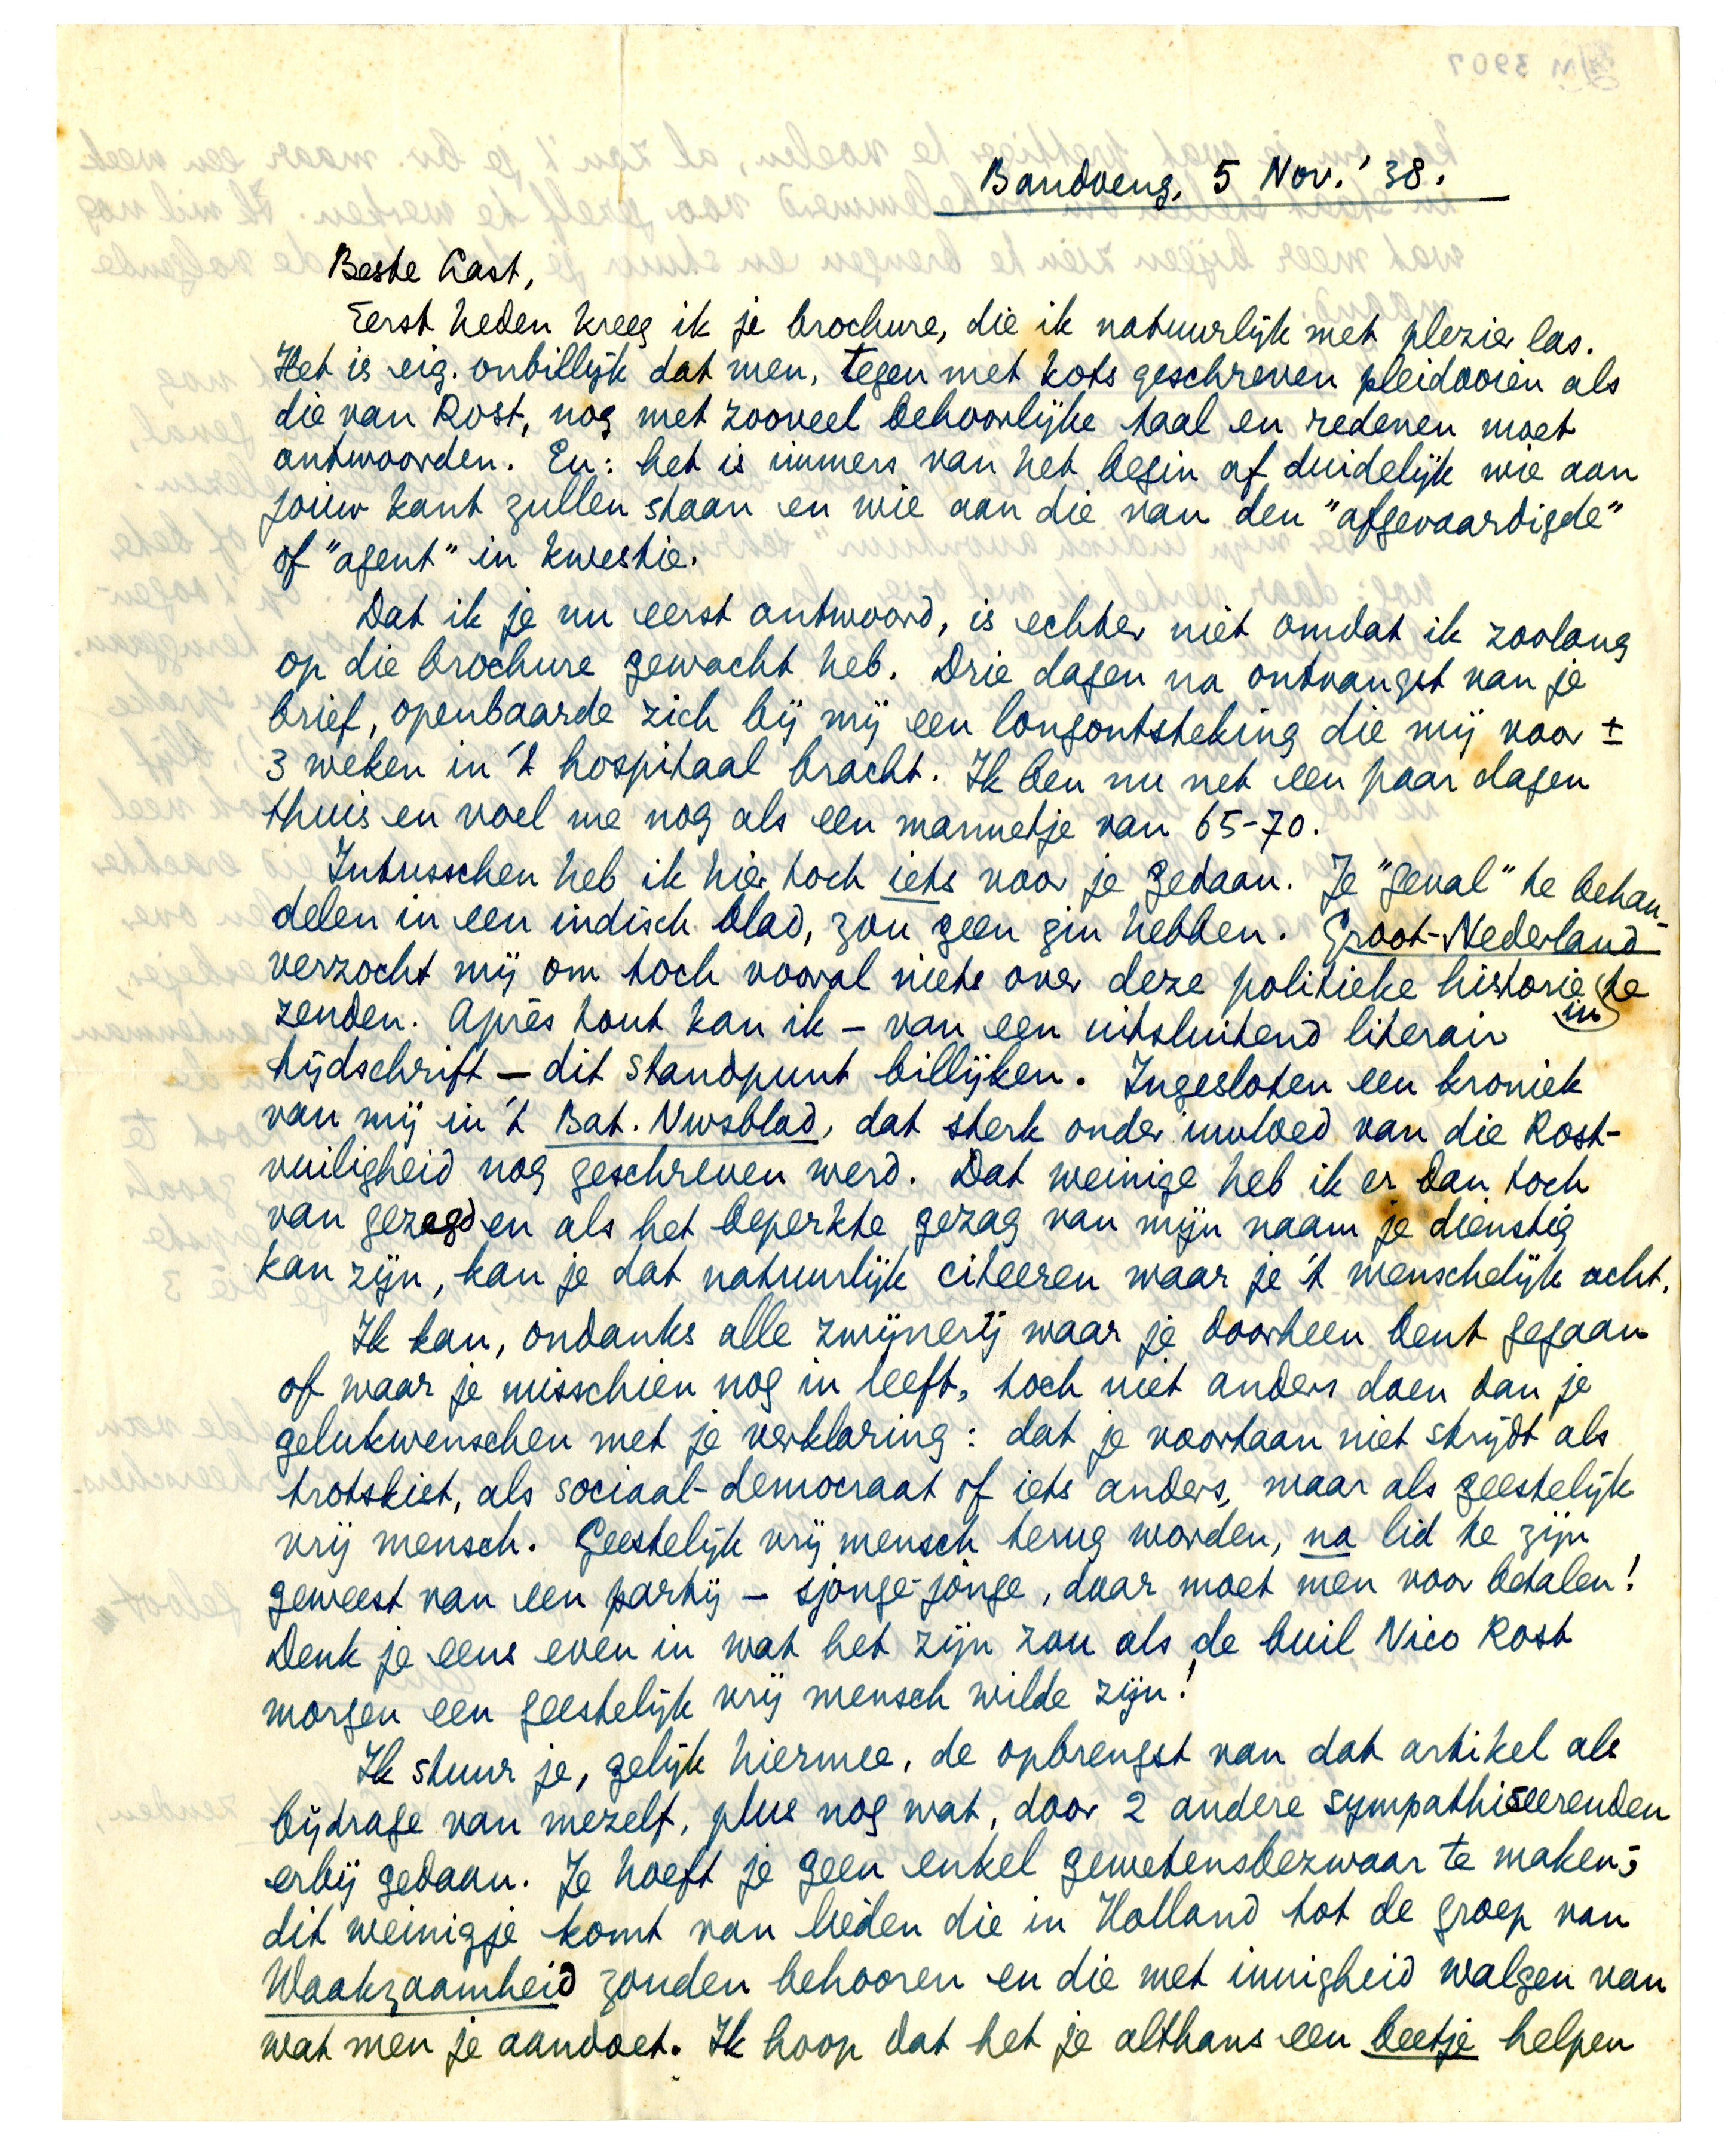 Bandoeng, 5 Nov. '38.
Beste Gast,
Eerst heden kreeg ik je brochure, die ik natuurlijk met plezier las.
Het is eig. onbillijk dat men, tegen met kots geschreven pleidooien als
die van Rost, nog met zooveel behoorlijke taal en redenen moet
antwoorden. En: het is immers van het begin af duidelijk wie aan
jouw kant zullen staan en wie aan die van den "afgevaardigde"
of "agent" in kwestie.
Dat ik je nu eerst antwoord, is echter niet omdat ik zoolang
op die brochure gewacht heb. Drie dagen na ontvangst van je
brief, openbaarde zich bij mij een longontsteking die mij voor ±
3 weken in 't hospitaal bracht. Ik ben nu net een paar dagen
thuis en voel me nog als een mannetje van 65-70.
Intusschen heb ik hier toch iets voor je gedaan. Je "geval" te behan-
delen in een indisch blad, zou geen zin hebben. Groot-Nederland
verzocht mij om toch vooral niets over deze politieke historie te
zenden. Après tout kan ik – van een uitsluitend literair in
tijdschrift – dit standpunt billijken. Ingesloten een kroniek
van mij in 't Bat. Nwsblad, dat sterk onder invloed van die Rost-
vuiligheid nog geschreven werd. Dat weinige heb ik er dan toch
van gezegd en als het beperkte gezag van mijn naam je dienstig
kan zijn, kan je dat natuurlijk citeeren waar je 't menschelijk acht.
Ik kan, ondanks alle zwijnerij waar je doorheen bent gegaan
of waar je misschien nog in leeft, toch niet anders doen dan je
gelukwenschen met je verklaring: dat je voortaan niet strijdt als
trotskiet, als sociaal-democraat of iets anders, maar als geestelijk
vrij mensch. Geestelijk vrij mensch terug worden, na lid te zijn
geweest van een partij – sjonge-jonge, daar moet men voor betalen!
Denk je eens even in wat het zijn zou als de buil Nico Rost
morgen een geestelijk vrij mensch wilde zijn!
Ik stuur je, gelijk hiermee, de opbrengst van dat artikel als
bijdrage van mezelf, plus nog wat, door 2 andere sympathiseerenden
erbij gedaan. Je hoeft je geen enkel gewetensbezwaar te maken;
dit weinigje komt van lieden die in Holland tot de groep van
Waakzaamheid zouden behooren en die met innigheid walgen van
wat men je aandoet. Ik hoop dat het je althans een beetje helpen